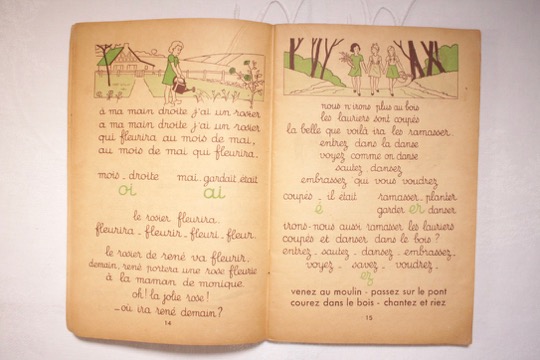 à ma main droite j'ai un rosier
à ma main droite j'ai un rosier
qui fleurira au mois de mai,
au mois de mai qui fleurira.
mois - droite mai - gardait était
oi ai
le rosier fleurira -
fleurira - fleurir - fleuri - fleur -
le rosier de rené va fleurir -
demain, rené portera une rose fleurie
à la maman de monique
oh! la jolie rose!
- où ira rené demain?
14
nous n'irons plus au bois
les lauriers sont coupés
la belle que voilà ira les ramasser -
entrez dans la danse
voyez comme on danse
sautez, dansez
embrassez qui vous voudrez
coupés - il était ramasser - planter
é garder er danser
irons-nous aussi ramasser les lauriers
coupés et danser dans le bois?
entrez - sautez - dansez - embrassez -
voyez - savez - voudrez -
ez
venez au moulin - passez sur le pont
courez dans le bois - chantez et riez
15